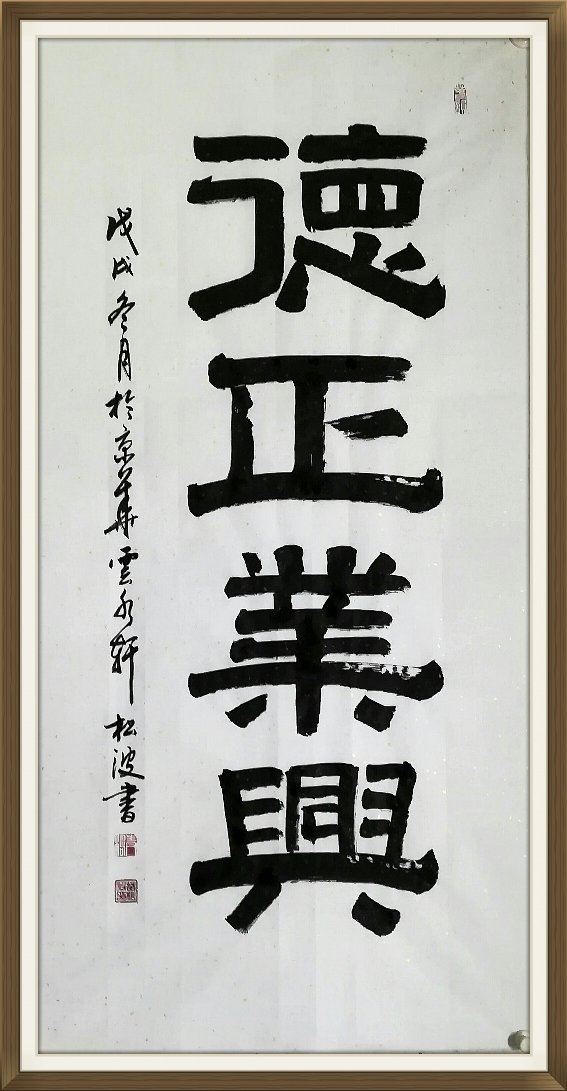 德正業興
戊戌冬月於京華雲水軒 松波書